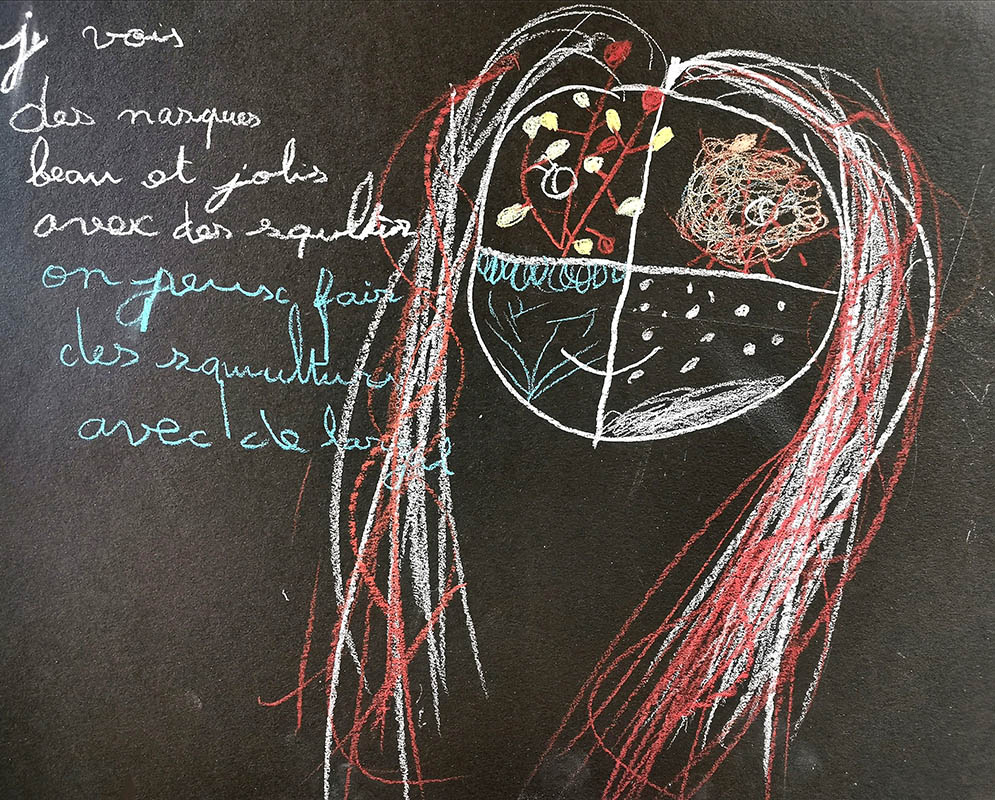 je vois
des nasques
beau et jolis
avex des squltur
on peux fair
des squultur
avec de